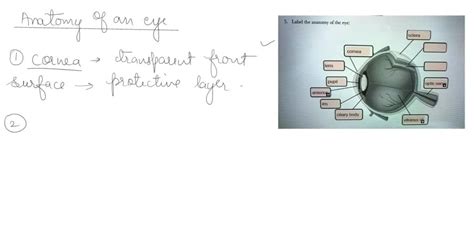 Anatomy of an eye
① cornea → transparent front
surface → protective layer.
②
5. Label the anatomy of the eye:
sclera
cornea
lens
pupil
iris
ciliary body